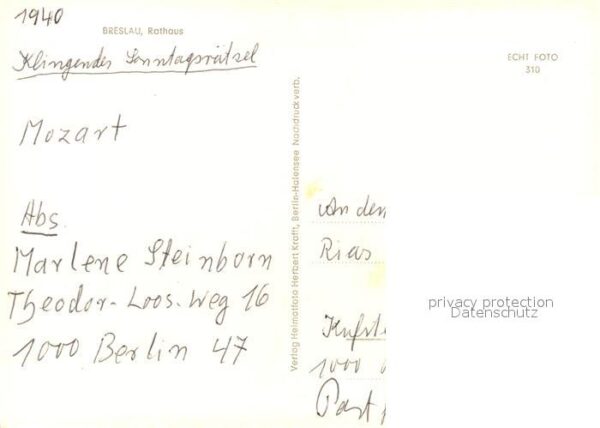 1940
BRESLAU, Rathaus
Klingendes Sonntagsrätsel
Mozart
Abs.
Marlene Steinborn
Theodor-Loos-Weg 16
1000 Berlin 47
Verlag Heimatfoto Herbert Krafft, Berlin-Halensee Nachdruckverb.
ECHT FOTO
310
An den
Rias
Kufst
1000
Post
privacy protection
Datenschutz